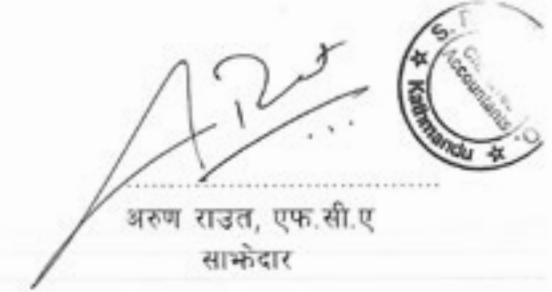 Accountants
Kathmandu
अरुण राउत, एफ.सी.ए
साझेदार